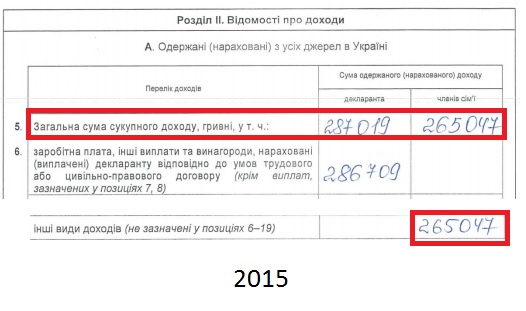 Розділ II. Відомості про доходи
А. Одержані (нараховані) з усіх джерел в Україні
Перелік доходів
Сума одержаного (нарахованого) доходу
декларанта
членів сім'ї
5. Загальна сума сукупного доходу, гривні, у т. ч.: 287019 265047
6. заробітна плата, інші виплати та винагороди, нараховані
(виплачені) декларанту відповідно до умов трудового
або цивільно-правового договору (крім виплат,
зазначених у позиціях 7, 8)
286709
інші види доходів (не зазначені у позиціях 6–19) 265047
2015